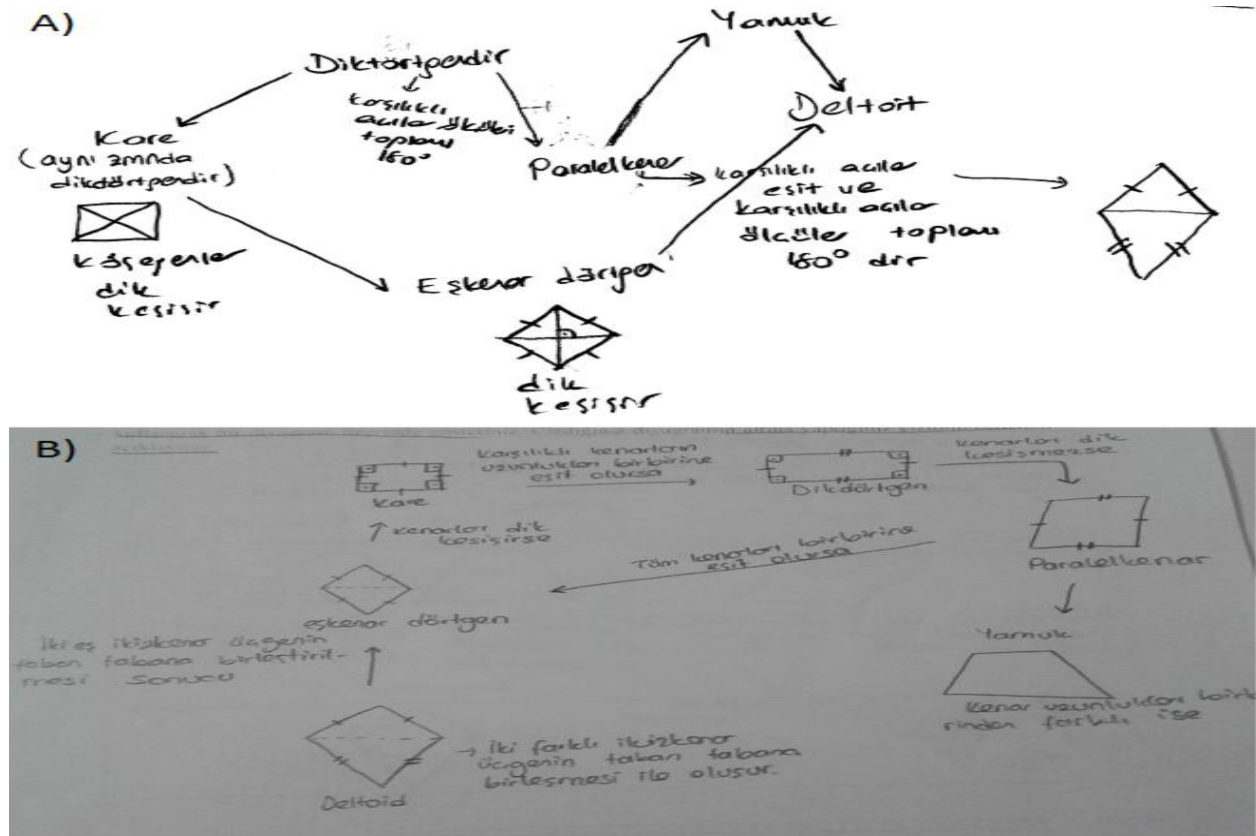 A)
Yamuk
Diktörtgendir
karşılıklı
açılar ölçüleri
toplamı
180°
Deltoit
Kare
(aynı zmnda
dikdörtgendir)
Paralelkenar
karşılıklı açılar
eşit ve
karşılıklı açılar
ölçüler toplamı
180° dir
köşegenler
dik
kesişir
Eşkenar dörtgen
dik
kesişir
B)
Karşılıklı kenarların
uzunlukları birbirine
eşit olursa
kenarları dik
kesişmezse
Kare
Dikdörtgen
kenarlar dik
kesişirse
Tüm kenarları birbirine
eşit olursa
Paralelkenar
eşkenar dörtgen
İki eş ikizkenar üçgenin
taban tabana birleştiril-
mesi sonucu
Yamuk
kenar uzunlukları birbi
rinden farklı ise
→ İki farklı ikizkenar
üçgenin taban tabana
birleşmesi ile oluşur.
Deltoid